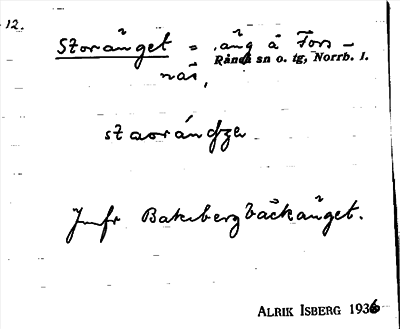 12.
Storänget = äng å Fors-
Råneå sn o. tg, Norrb. l.
näs,
Jmfr Bakubergbäckänget.
ALRIK ISBERG 1936